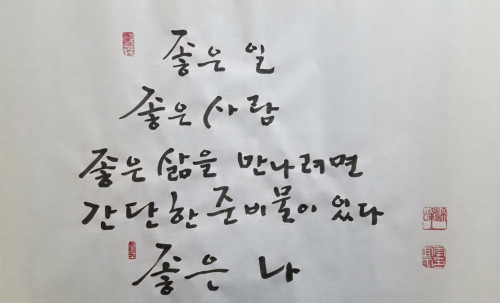 좋은 일
좋은 사람
좋은 삶을 만나려면
간단한 준비물이 있다
좋은 나